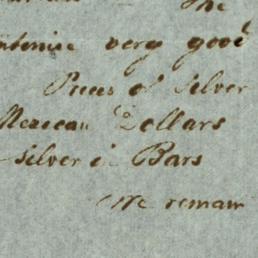 The
very good
Pieces of Silver
Mexican Dollars
silver in Bars
We remain